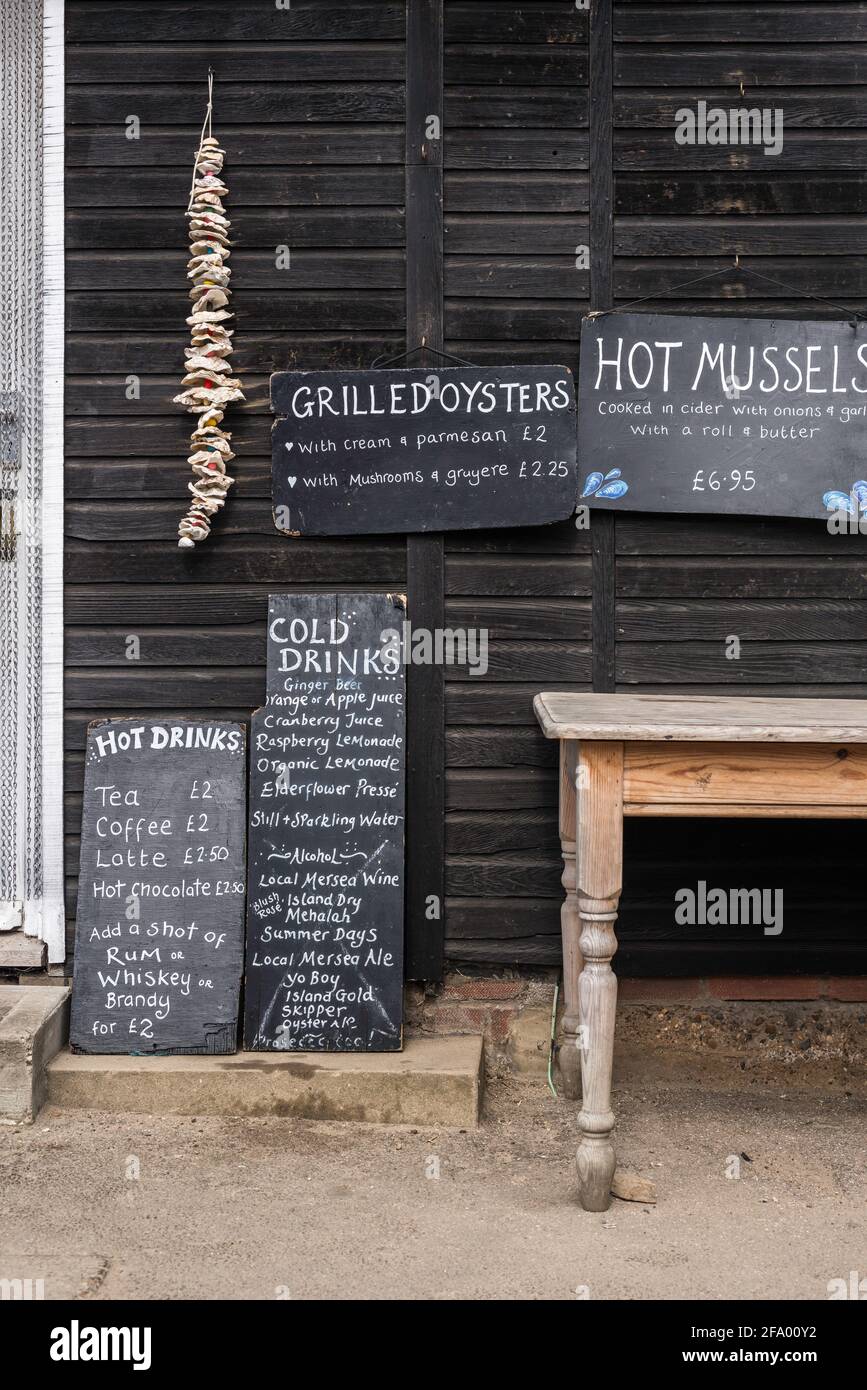 GRILLED OYSTERS
♥ With cream & parmesan £2
♥ With Mushrooms & gruyere £2.25
HOT MUSSELS
Cooked in cider with onions & garl
With a roll & butter
£6.95
HOT DRINKS
Tea £2
Coffee £2
Latte £2.50
Hot chocolate £2.50
Add a shot of
Rum or
Whiskey or
Brandy
for £2
COLD
DRINKS
Ginger Beer
range or Apple Juice
Cranberry Juice
Raspberry Lemonade
Organic Lemonade
Elderflower Pressé
Still + Sparkling Water
Alcohol
Local Mersea Wine
Blush Rosé Island Dry
Mehalah
Summer Days
Local Mersea Ale
Yo Boy
Island Gold
Skipper
Oyster Ale
alamy
Image ID: 2FA00Y2
www.alamy.com